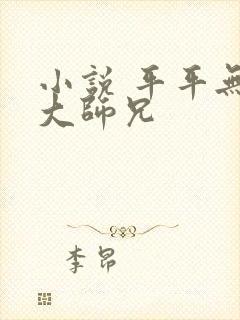 小說 平平無
大師兄
李昂